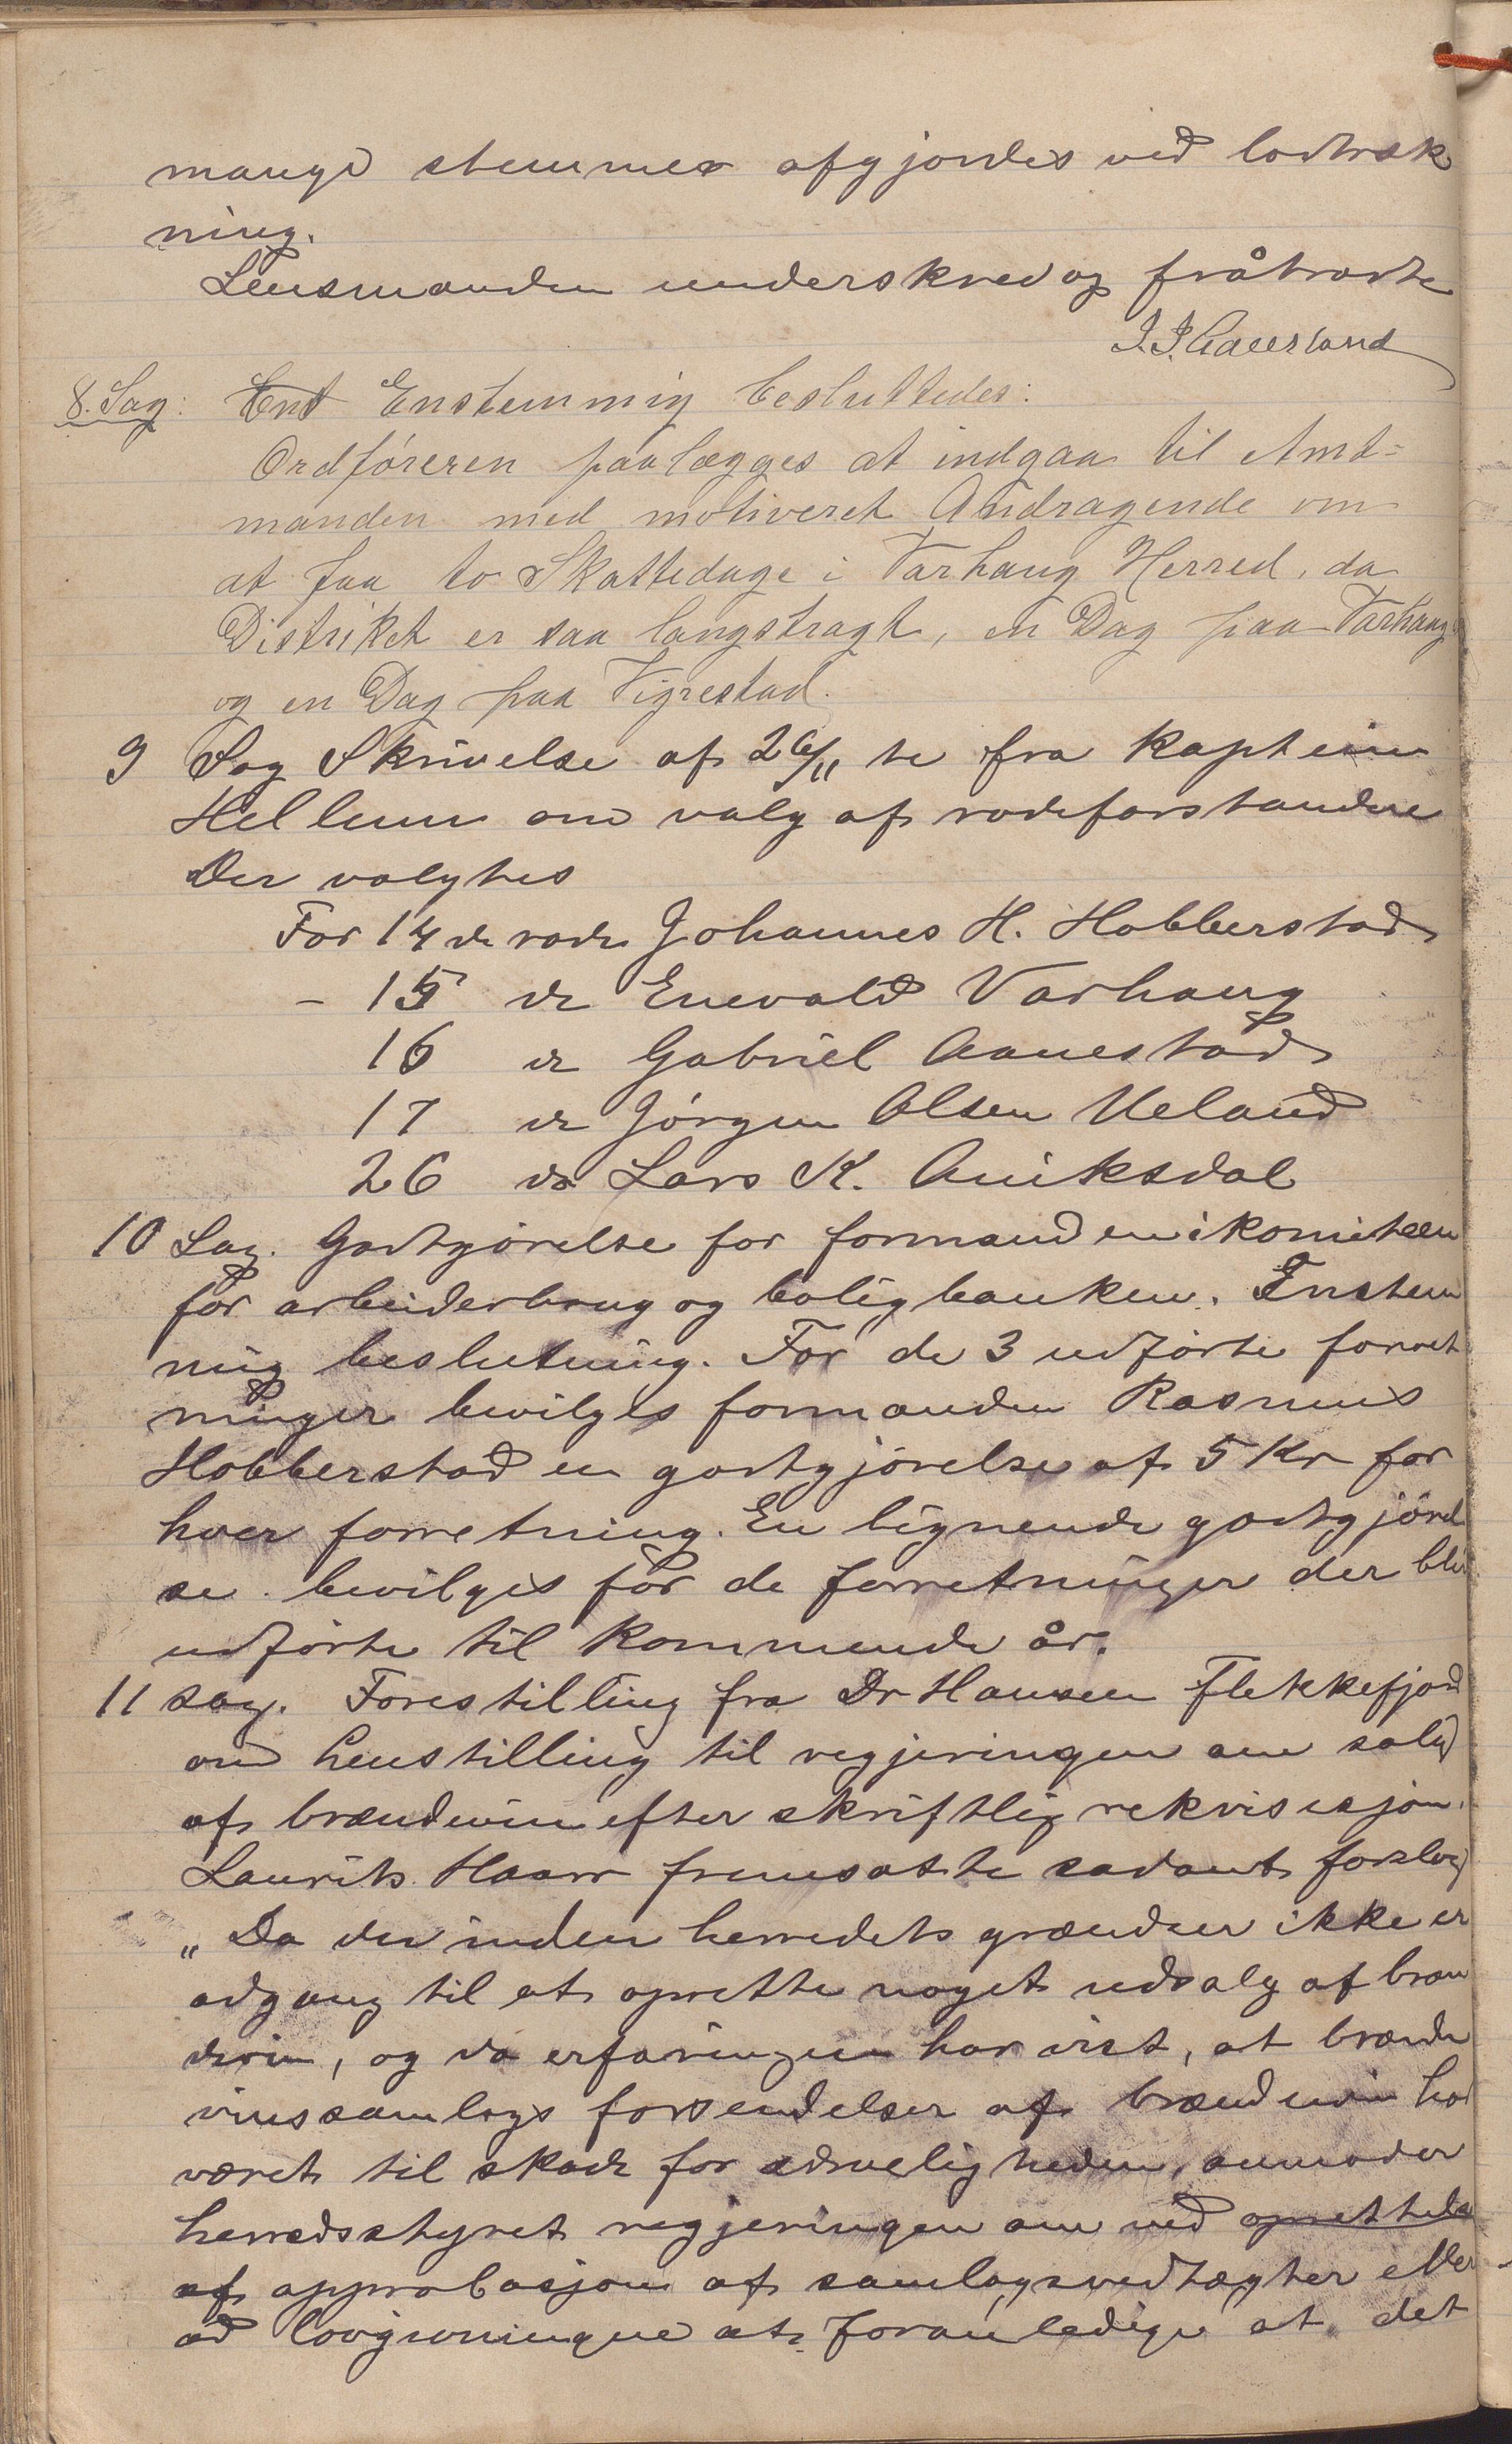 mange stemmer afgjordes ved lodtræk
ning.
Lensmanden underskrev og fråtraadte
8. Sag: Enst Enstemmig besluttedes:
Ordføreren paalægges at indgaa til Amt-
manden med motiveret Andragende om
at faa to Skattedage i Varhaug Herred, da
Distriket er saa langstragt, en Dag paa Varhaug
og en Dag paa Vigrestad.
9 Sag Skrivelse af 26/11 te fra kaptein
Hellum om valg af rodeforstandere
Der valgtes
For 14 de rode Johannes H. Hobberstad
- 15 de Enevald Varhaug
16 de Gabriel Aanestad
17 de Jørgen Olsen Ueland
26 de Lars K. Auiksdal
10 Sag. Godtgjørelse for formanden i komiteen
for arbeiderbrug og boligbanken. Enstem
mig beslutning. For de 3 udførte forret
ninger bevilges formanden Rasmus
Hobberstad en godtgjørelse af 5 Kr for
hver forretning. En lignende godtgjørel
se bevilges for de forretninger der bli
udførte til kommende år.
11 sag. Forestilling fra Dr Hansen Flekkefjord
om henstilling til regjeringen om salg
af brændevin efter skriftlig rekvisisjon.
Laurits Haar fremsatte sådant forslag
„Da der inden herredets grændser ikke er
adgang til at oprette noget udsalg af bræn
devin, og da erfaringen har vist, at brænde
vinssamlags forsendelser af brændevin har
været til skade for ædrueligheden, anmoder
herredsstyret regjeringen om ved oprettelse
af approbasjon af samlagsvedtægter eller
ad lovgivningne at foranledige at det